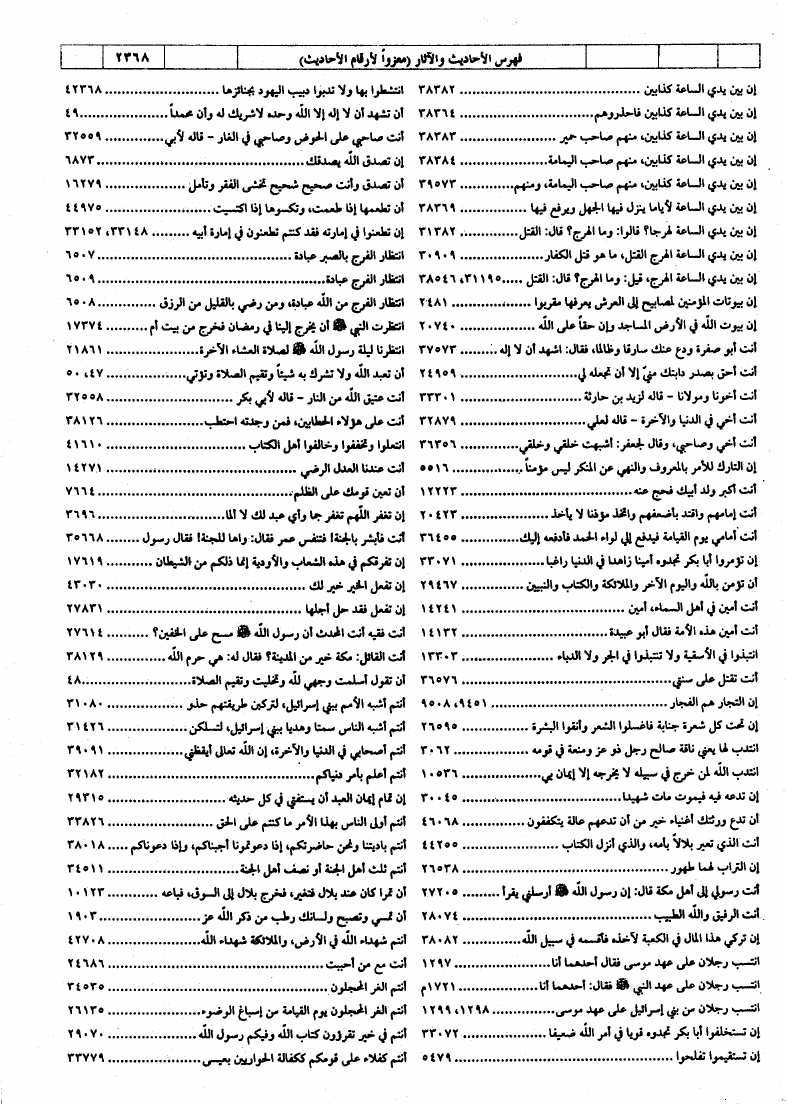 فهرس الأحاديث والآثار (معزواً لأرقام الأحاديث)
٢٣٦٨
إن بين يدي الساعة كذابين ٣٨٣٨٢
إن بين يدي الساعة كذابين فاحذروهم ٣٨٣٦٤
إن بين يدي الساعة كذابين، منهم صاحب حمير ٣٨٣٨٣
إن بين يدي الساعة كذابين، منهم صاحب اليمامة ٣٨٣٨٤
إن بين يدي الساعة كذابين، منهم صاحب اليمامة، ومنهم ٣٩٥٧٣
إن بين يدي الساعة لأياما ينزل فيها الجهل ويرفع فيها ٣٨٣٦٩
إن بين يدي الساعة لهرجا؟ قالوا: وما الهرج؟ قال: القتل ٣١٣٨٢
إن بين يدي الساعة الهرج القتل، ما هو قتل الكفار ٣٠٩٠٩
إن بين يدي الساعة الهرج، قيل: وما الهرج؟ قال: القتل ٣١١٩٥، ٣٨٥٤٦
إن بيوتات المؤمنين لمصابيح إلى العرش يعرفها مقربوا ٢٤٨١
إن بيوت الله في الأرض المساجد وإن حقاً على الله ٢٠٧٤٠
أنت أبو صفرة ودع عنك سارقا وظالما، فقال: اشهد أن لا إله ٣٧٥٧٣
أنت أحق بصدر دابتك منيّ إلا أن تجعله لي ٢٤٩٥٩
أنت أخونا ومولانا - قاله لزيد بن حارثة ٣٣٣٠١
أنت أخي في الدنيا والآخرة - قاله لعلي ٣٢٨٧٩
أنت أخي وصاحبي، وقال لجعفر: أشبهت خلقي وخلقي ٣٦٣٥٦
إن التارك للأمر بالمعروف والنهي عن المنكر ليس مؤمناً ٥٥١٦
أنت أكبر ولد أبيك فحج عنه ١٢٢٢٣
أنت إمامهم واقتد بأضعفهم واتخذ مؤذنا لا يأخذ ٢٠٤٢٣
أنت أمامي يوم القيامة فيدفع إلي لواء الحمد فأدفعه إليك ٣٦٤٥٥
إن تؤمروا أبا بكر تجدوه أمينا زاهدا في الدنيا راغبا ٣٣٠٧١
أن تؤمن بالله واليوم الآخر والملائكة والكتاب والنبيين ٢٩٤٦٧
أنت أمين في أهل السماء، أمين ١٤٢٤١
أنت أمين هذه الأمة فقال أبو عبيدة ١٤١٣٢
انتبذوا في الأسقية ولا تنتبذوا في الجر ولا الدباء ١٣٣٠٣
أنت تقتل على سنتي ٣٦٥٧٦
إن التجار هم الفجار ٩٤٥١، ٩٥٠٨
إن تحت كل شعرة جنابة فاغسلوا الشعر وأنقوا البشرة ٢٦٥٩٥
انتدب لها يعني ناقة صالح رجل ذو عز ومنعة في قومه ٣٠٦٢
انتدب الله لمن خرج في سبيله لا يخرجه إلا إيمان بي ١٠٥٣٦
إن تدعه فيه فيموت مات شهيدا ٣٠٠٤٥
أن تدع ورثتك أغنياء خير من أن تدعهم عالة يتكففون ٤٦٠٦٨
أنت الذي تعير بلالاً بأمه، والذي أنزل الكتاب ٤٤٢٥٥
إن التراب لهما طهور ٢٦٥٣٨
أنت رسولي إلى أهل مكة قال: إن رسول الله ﷺ أرسلني يقرأ ٢٧٢٠٥
أنت الرفيق والله الطبيب ٢٨٠٧٤
إن تركي هذا المال في الكعبة لآخذه فأقسمه في سبيل الله ٣٨٠٨٢
انتسب رجلان على عهد موسى فقال أحدهما أنا ١٢٩٧
انتسب رجلان على عهد النبي ﷺ فقال: أحدهما أنا ١٧٢١م
انتسب رجلان من بني إسرائيل على عهد موسى ١٢٩٨، ١٢٩٩
إن تستخلفوا أبا بكر تجدوه قويا في أمر الله ضعيفا ٣٣٠٧٢
إن تستقيموا تفلحوا ٥٤٧٩
انتشطوا بها ولا تدبوا دبيب اليهود بجنائزها ٤٢٣٦٨
أن تشهد أن لا إله إلا الله وحده لاشريك له وأن محمداً ٤٩
أنت صاحبي على الحوض وصاحبي في الغار - قاله لأبي ٣٢٥٥٩
إن تصدق الله يصدقك ٦٨٧٣
أن تصدق وأنت صحيح شحيح تخشى الفقر وتأمل ١٦٢٧٩
أن تطعمها إذا طعمت، وتكسوها إذا اكتسيت ٤٤٩٧٥
إن تطعنوا في إمارته فقد كنتم تطعنون في إمارة أبيه ٣٣١٤٨، ٣٣١٥٢
انتظار الفرج بالصبر عبادة ٦٥٠٧
انتظار الفرج عبادة ٦٥٠٩
انتظار الفرج من الله عبادة، ومن رضي بالقليل من الرزق ٦٥٠٨
انتظرت النبي ﷺ أن يخرج إلينا في رمضان فخرج من بيت أم ١٧٣٧٤
انتظرنا ليلة رسول الله ﷺ لصلاة العشاء الآخرة ٢١٨٦١
أن تعبد الله ولا تشرك به شيئاً وتقيم الصلاة وتؤتي ٤٧، ٥٠
أنت عتيق الله من النار - قاله لأبي بكر ٣٢٥٥٨
أنت على هؤلاء الحطابين، فمن وجدته احتطب ٣٨١٢٦
انتعلوا وتخففوا وخالفوا أهل الكتاب ٤١٦١٠
أنت عندنا العدل الرضي ١٤٢٧١
أن تعين قومك على الظلم ٧٦٦٤
إن تغفر اللهم تغفر جما وأي عبد لك لا ألما ٣٦٩٦
أنت فأبشر بالجنة! فتنفس عمر فقال: واها للجنة! فقال رسول ٣٥٦٦٨
إن تفرقكم في هذه الشعاب والأودية إنما ذلكم من الشيطان ١٧٦١٩
إن تفعل الخير خير لك ٤٣٠٣٠
إن تفعل فقد حل أجلها ٢٧٨٣١
أنت فقيه أنت المحدث أن رسول الله ﷺ مسح على الخفين؟ ٢٧٦١٤
أنت القائل: مكة خير من المدينة؟ فقال له: هي حرم الله ٣٨١٢٩
أن تقول أسلمت وجهي لله وتخليت وتقيم الصلاة ٤٨
أنتم أشبه الأمم ببني إسرائيل، لتركبن طريقتهم حذو ٣١٠٨٠
أنتم أشبه الناس سمتا وهديا ببني إسرائيل، لتسلكن ٣١٤٢٦
أنتم أصحابي في الدنيا والآخرة، إن الله تعالى أيقظني ٣٩٠٩١
أنتم أعلم بأمر دنياكم ٣٢١٨٢
إن تمام إيمان العبد أن يستثني في كل حديثه ٢٩٣١٥
أنتم أولى الناس بهذا الأمر ما كنتم على الحق ٣٣٨٢٦
أنتم باديتنا ونحن حاضرتكم، إذا دعوتمونا أجبناكم، وإذا دعوناكم ٣٨٠١٨
أنتم ثلث أهل الجنة أو نصف أهل الجنة ٣٤٥١١
أن تمرا كان عند بلال فتغير، فخرج بلال إلى السوق، فباعه ١٠١٢٣
أن تمسي وتصبح ولسانك رطب من ذكر الله عز ١٩٠٣
أنتم شهداء الله في الأرض، والملائكة شهداء الله ٤٢٧٠٨
أنت مع من أحببت ٢٤٦٨٦
أنتم الغر المحجلون ٣٤٥٣٥
أنتم الغر المحجلون يوم القيامة من إسباغ الوضوء ٢٦١٣٥
أنتم في خير تقرؤون كتاب الله وفيكم رسول الله ٢٩٠٧٠
أنتم كفلاء على قومكم ككفالة الحواريين بعيسى ٣٣٧٧٩